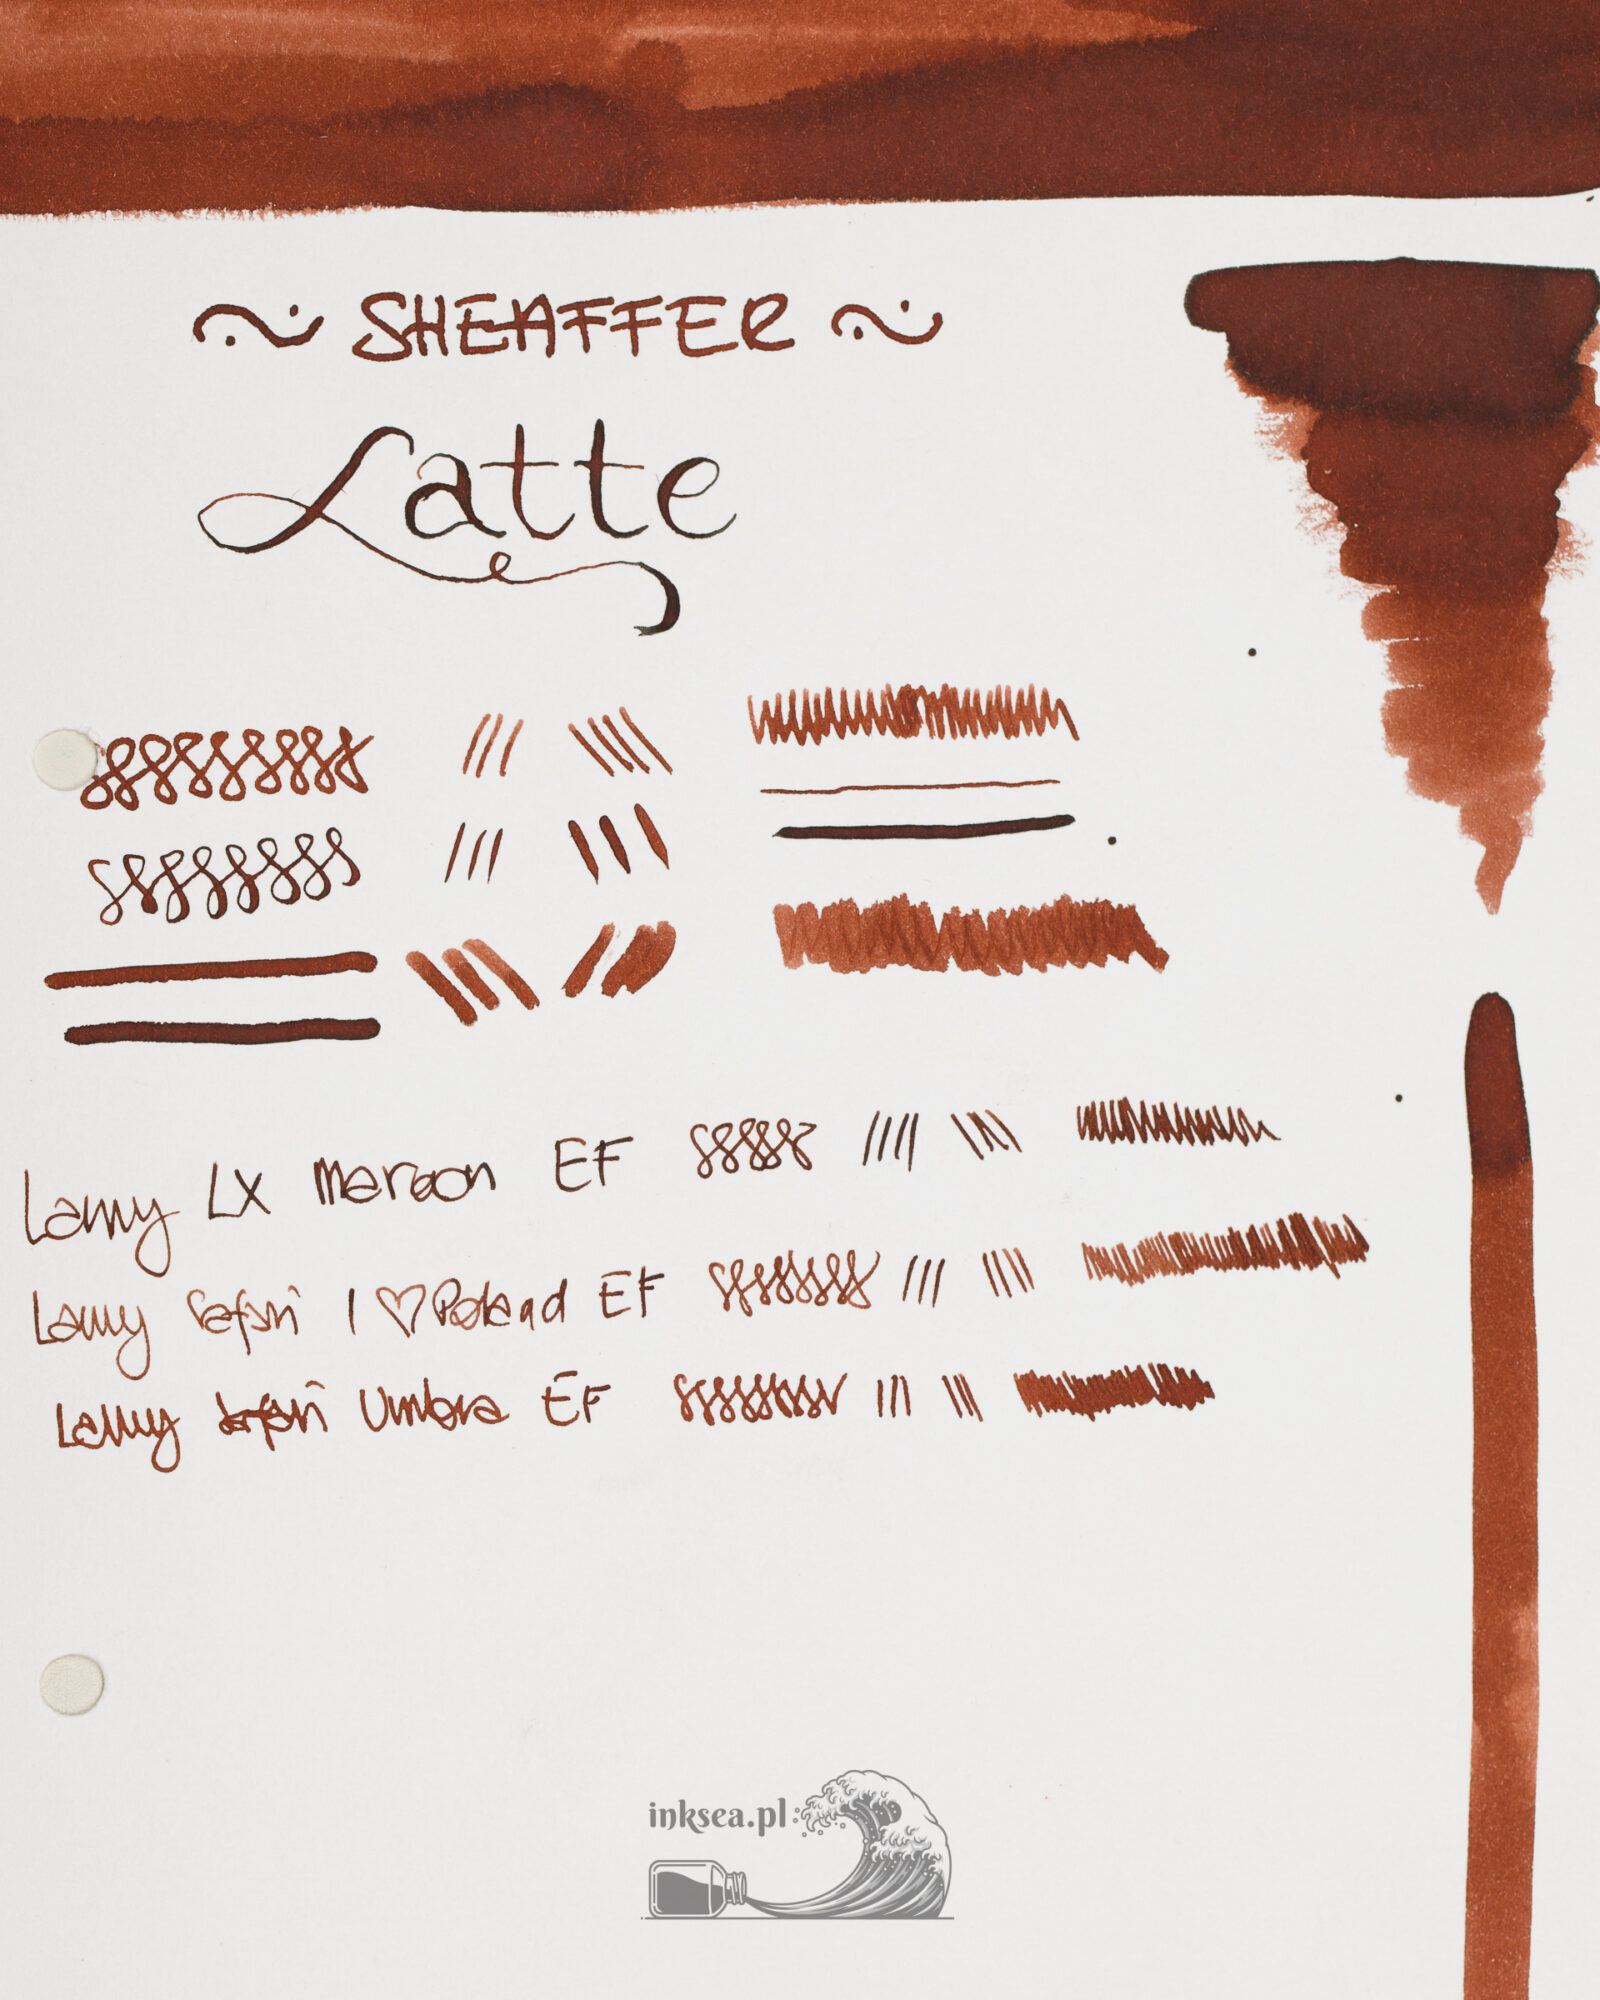 ~ SHEAFFER ~
Latte
Lamy LX Maroon EF
Lamy Safari I ♡ Poland EF
Lamy Safari Umbra EF
inksea.pl